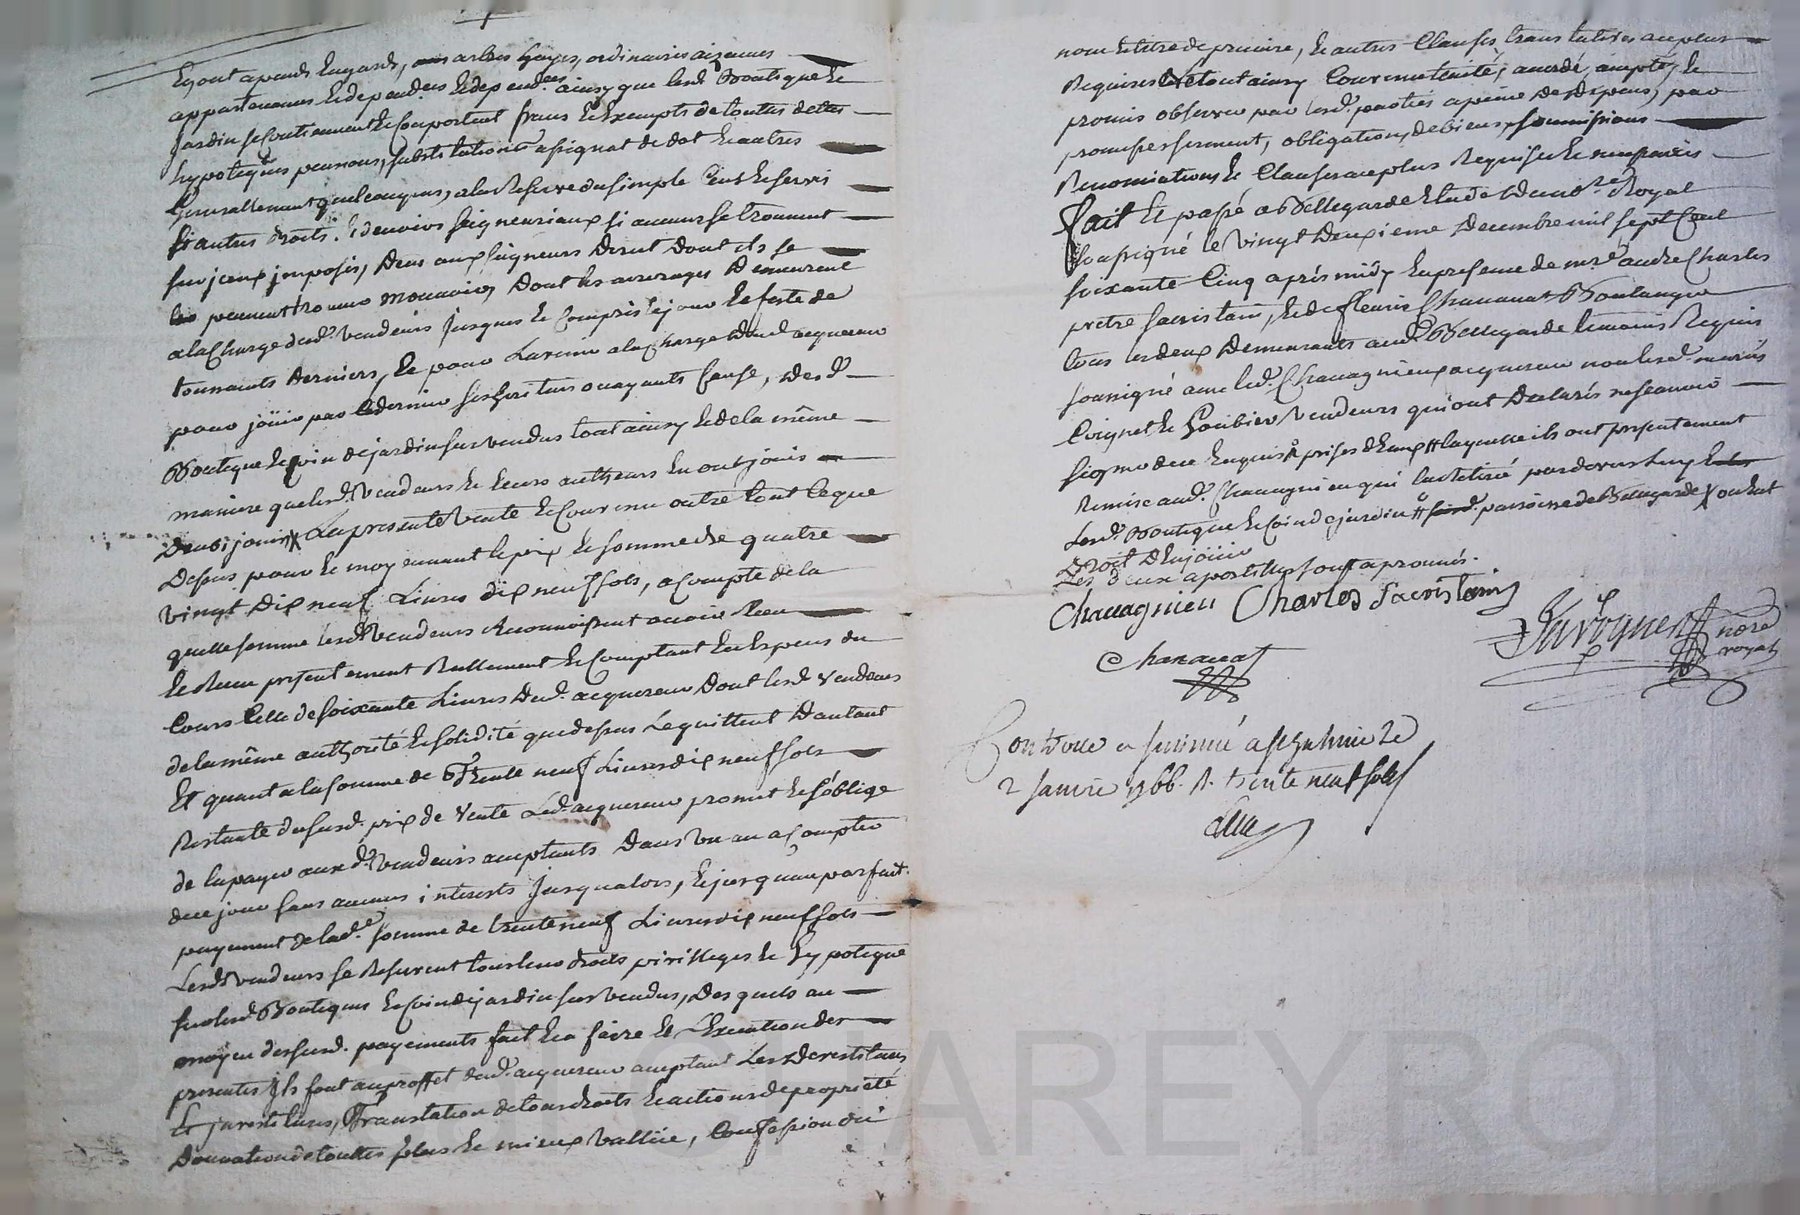 appartenances & dependces & dependces ainsy que lesd. Boutique &
jardin se contiennent & comportent francs & exempts de touttes dettes
hypoteques pensions, substitutions assignat de dot & autres
Generallement quelconques, a la Reserve du simple cens & servis
& autres droits & devoirs seigneuriaux si aucuns se trouvent
sur jceux jmposés, deus aux seigneurs dirict dont ils se
peuvent trouver mouvoir, dont les arrerages demeurent
a la charge desd. vendeurs jusques & compris le jour & feste de
toussaints derniere, & pour l'avenir a la charge dud. acquereur
pour joüir par ce dernier ses heritiers ou ayants cause, desd.
Boutique & coin de jardin sus vendus tout ainsy & de la même
maniere que lesd. vendeurs & leurs autheurs en ont jouis
La presente vente & convenu outre tout ce que
dessus pour & moyennant le prix & somme de quatre
vingt dix neuf Livres dix neuf sols, a compte de la
quelle somme lesd. vendeurs Reconnoissent avoir Reçu
& Reçu presentement Reellement & comptant en Especes du
Cours celle de soixante Livres dud. acquereur dont lesd. vendeurs
de la même authorité & solidité que dessus le quittent d'autant
Et quant a la somme de Trente neuf Livres dix neuf sols
Restante du susd. prix de vente Led. acquereur promet & s'oblige
de la payer auxd. vendeurs acceptants dans un an a compter
de ce jour sans aucuns interests jusqu'alors, & jusqu'au parfait
payement de lade. somme de trente neuf Livres dix neuf sols
Lesd. vendeurs se Reservent tous leurs droits privilleges & hypoteque
sur lesd. Boutiques & coin de jardin sus vendus, desquels au
moyen des susd. payements fait & a faire & Execution des
presentes ils font au proffet dud. acquereur acceptant Les devestitures
Et jnvestitures, Translation de tous droits & actions de propriété
Donnation de touttes plus & mieux vallüe, Confession du
nom & titre de precaire, & autres Clauses translatives au plus
Requises Et tout ainsy Convenu traité, accordé, accepté, &
promis observer par lesd. parties a peine de dépens, par
promesse serment, obligations de biens, soumissions
Renonciations & Clauses au plus Requises &
Fait Et passé a Bellegarde Etude du nore. Royal
soussigné le vingt deuxieme Decembre mil sept Cent
soixante Cinq aprés midy En presence de mre. andré Charles
prêtre sacristain, & de fleury Chavanat Boulanger
tous les deux Demeurants aud. Bellegarde témoins Requis
soussigné avec led. Chavagnieu acquereur non lesd. mariés
Coignet & Barbier vendeurs qui ont Declarés ne sçavoir
signer de ce Enquis & prises d'eux # laquelle ils ont presentement
Remise aud. Chavagnieu qui l'a Retirée par devers luy
Lesd. Boutique & Coin de jardin # parroisse de Bellegarde X ou Eut
Droit d'En joüir
Les deux apostilles sont aprouvés.
Chavagnieu Charles Sacristain
Chavanat
Javogues nore
royal
Controllé a st galmier le
2 janvier 1766. R. trente neuf sols